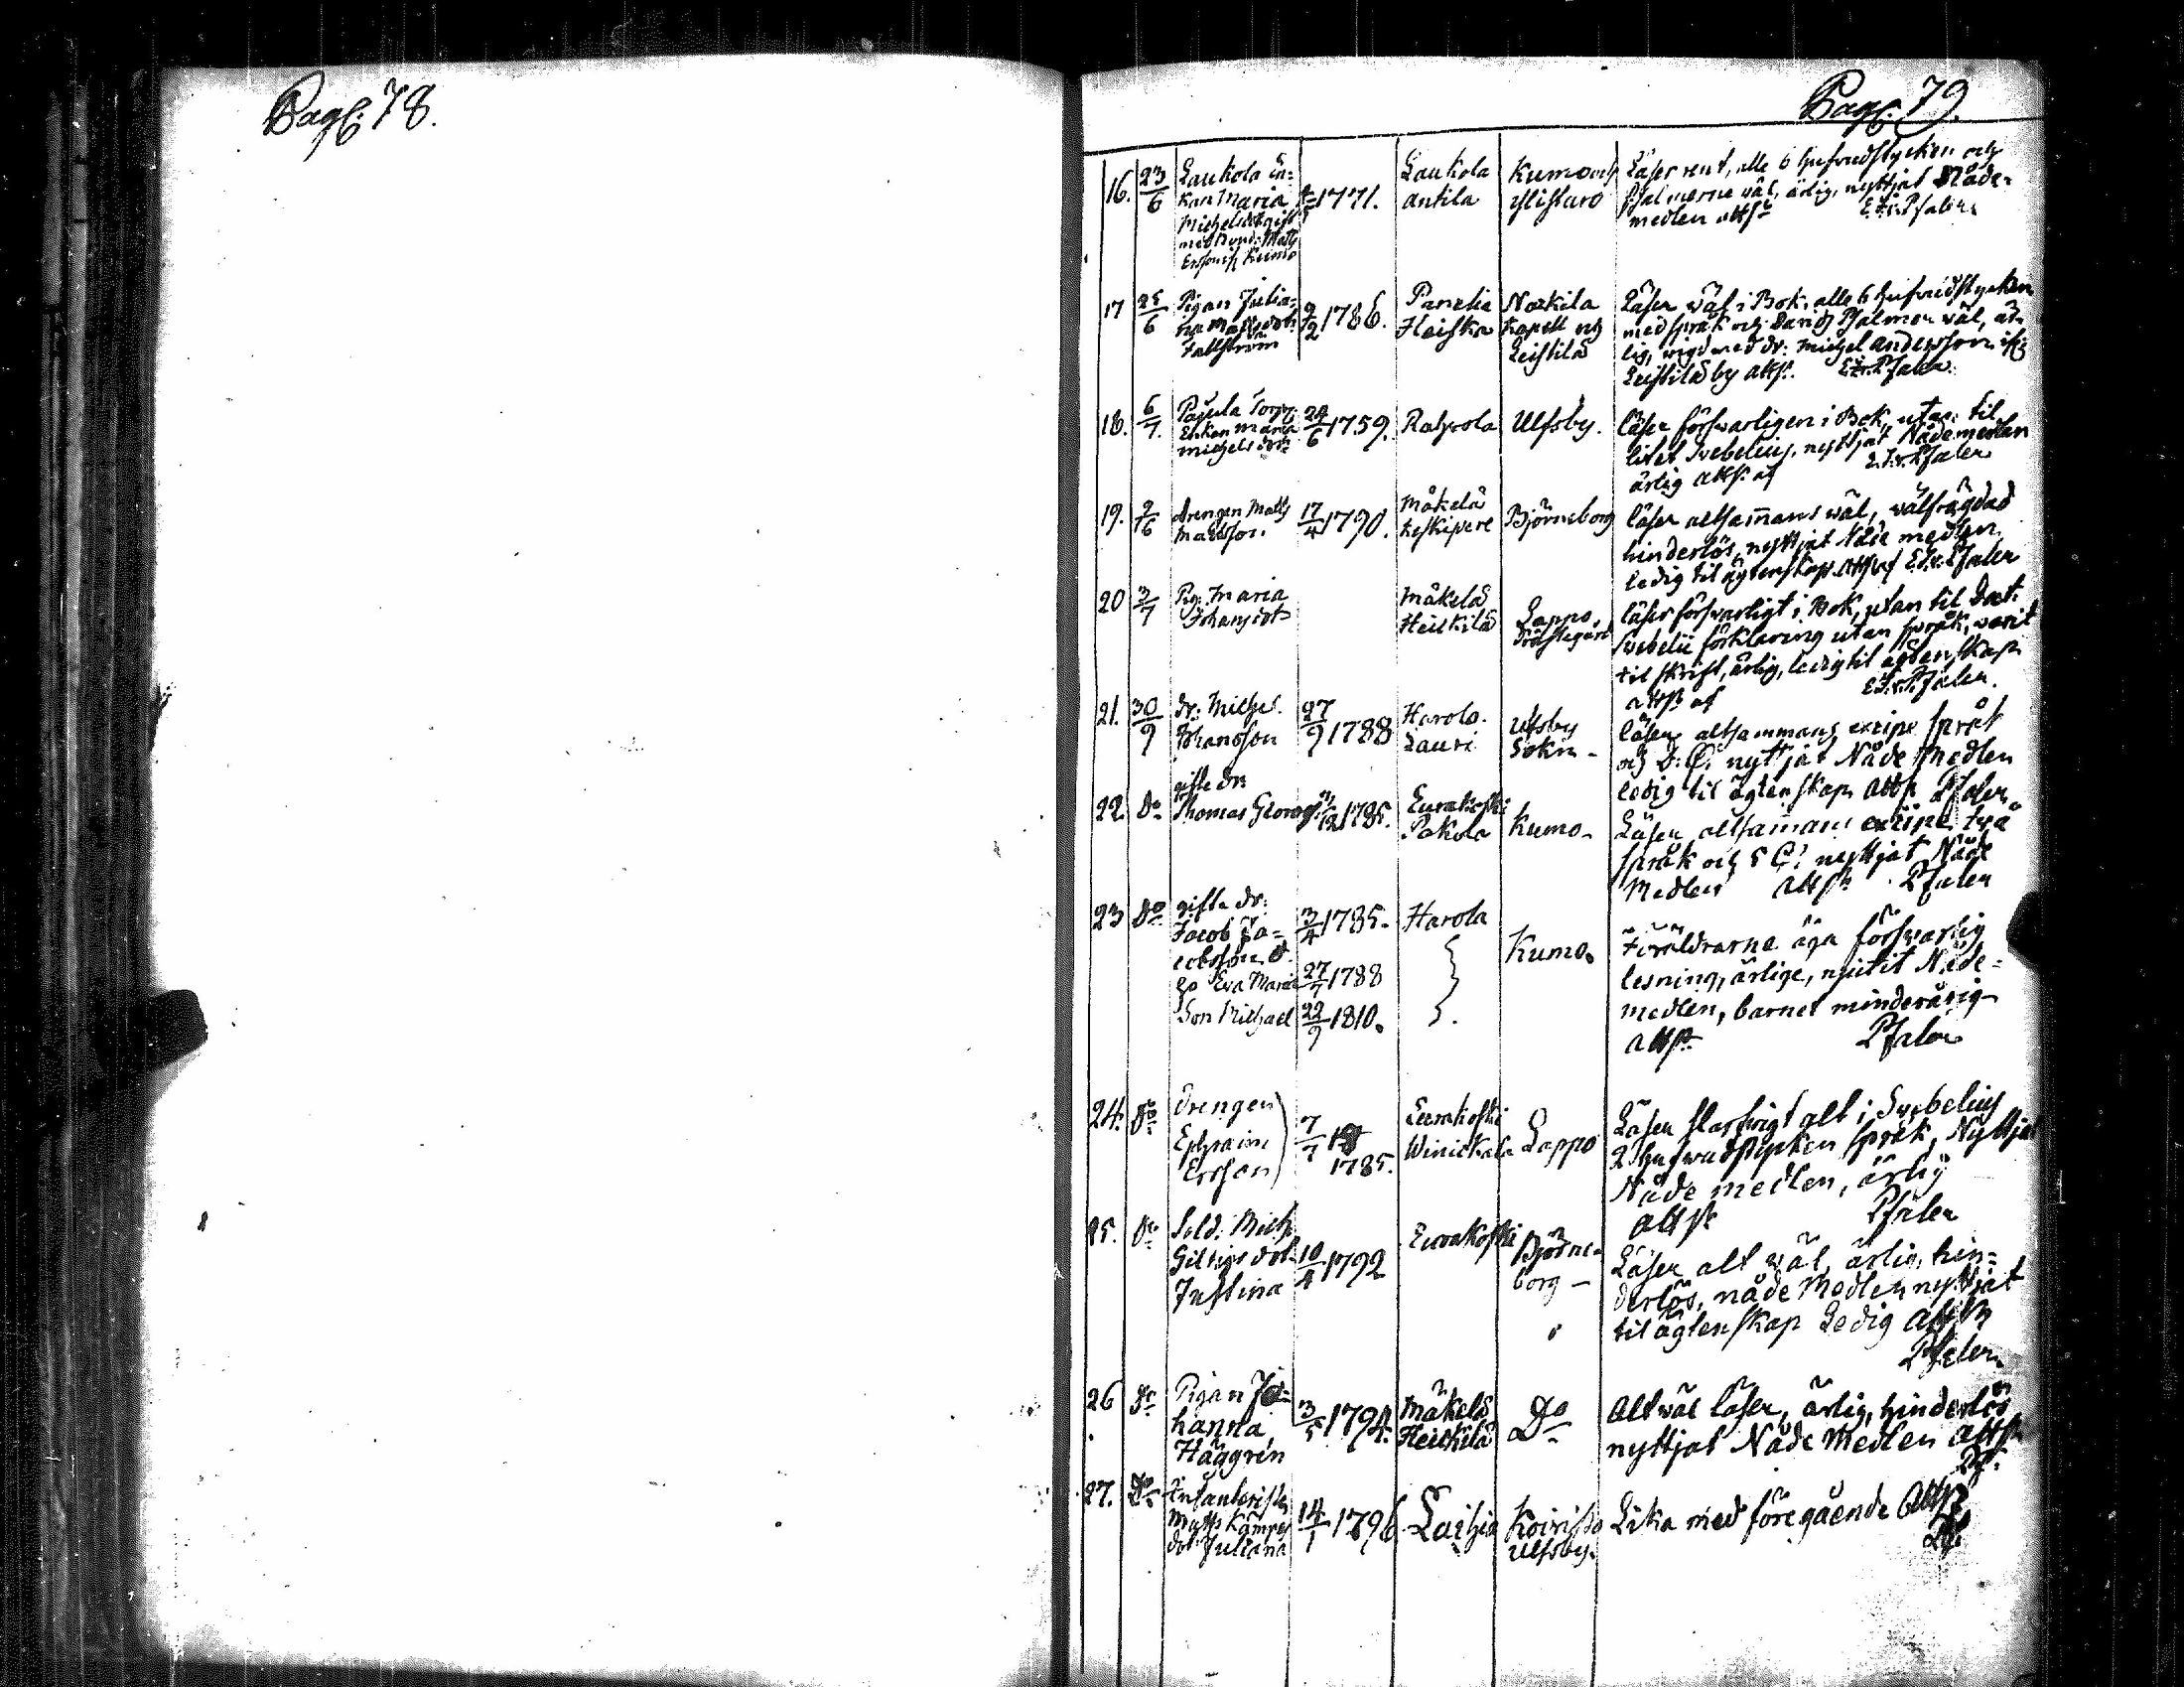 Pag: 78.
Pag: 79.
16. 23/6 Laukola än=
kan Maria
Michelsdotr gift
med Bond: Matts
Ersson i Kumo
1771.
Laukola
Antila
Kumo och
Ylistaro
Läser rent, alle 6 hufvudstycken och
Psalmerne väl, ärlig, nyttjat Nåde-
medlen atts:
17 25/6 Pigan Julia-
na Mattsdotr
Fallström
9/2 1786.
Panelia
Heiska
Nackila
Kapell och
Leistilä
Läser wäl i Bok, alle 6 hufvudstycken
med språk och Davidz Psalmer wäl, är-
lig, wigd med dr: Michel Andersson ifrån
Leistilä by atts:
18. 6/7. Torp:
Enkan Maria
Michelsdotr
24/6 1759.
Ulfsby.
läser försvarligen i Bok, utan til
litet Svebelius, nyttjat Nådemedlen
ärlig atts: af
19. 9/6 drengen Matts
Mattsson.
17/4 1790.
Mäkelä
Björneborg
läser altsammans wäl, wälfrägdad
hinderlös, nyttjat Nåde medlen,
ledig til ägtenskap. atts: af
20 3/7 Pig: Maria
Johansdotr
Mäkelä
Heickilä
Lappo,
Prästegård
läser försvarligt i Bok, utan til
Svebelii förklaring utan språk, warit
til skrift, ärlig, ledig til ägtenskap
atts: af
21. 30/9 dr: Michel
Johansson
27/9 1788
Harola
Lauri
Ulfsby
Sokn-
läser altsammans excipe språk
och nyttjat Nåde Medlen
ledig til ägtenskap atts:
22. Do gifte dr:
Thomas Georgsson
/12 1785.
Eurakoski
Pakola
Kumo-
Läser altsammans excipe två
språk och nyttjat Nåde
Medlen atts:
23 Do gifte dr:
Jacob Ja=
cobsson
Eva Maria
Son Michael
3/4 1785.
27/7 1788
22/9 1810.
Harola
Kumo.
Föräldrarne äga försvarlig
lesning, ärlige, njutit Nåde=
medlen, barnet minderårig-
atts:
24. Do Drengen
Ephraim
Ersson
7/7
1785.
Eurakoski
Winickala
Lappo
Läser slarfvigt alt i Svebelius
2 hufwudstycken språk, Nyttjat
Nåde medlen, ärlig
atts:
25. Do Sold: Mich
dotr
Justina
10/4 1792
Eurakoski
Björne-
borg -
Läser alt wäl, ärlig, hin=
derlös, nåde Medlen nyttjat
til ägtenskap Ledig atts:
26 Do Pigan Jo=
hanna
Häggrén
3/5 1794.
Mäkelä
Heickilä
Do
Alt wäl läser, ärlig, hinderlös
nyttjat Nåde Medlen atts:
27. Do Infanterist
Matts Kämpes
dotr Juliana
14/1 1796
Ulfsby.
Lika med föregående atts: